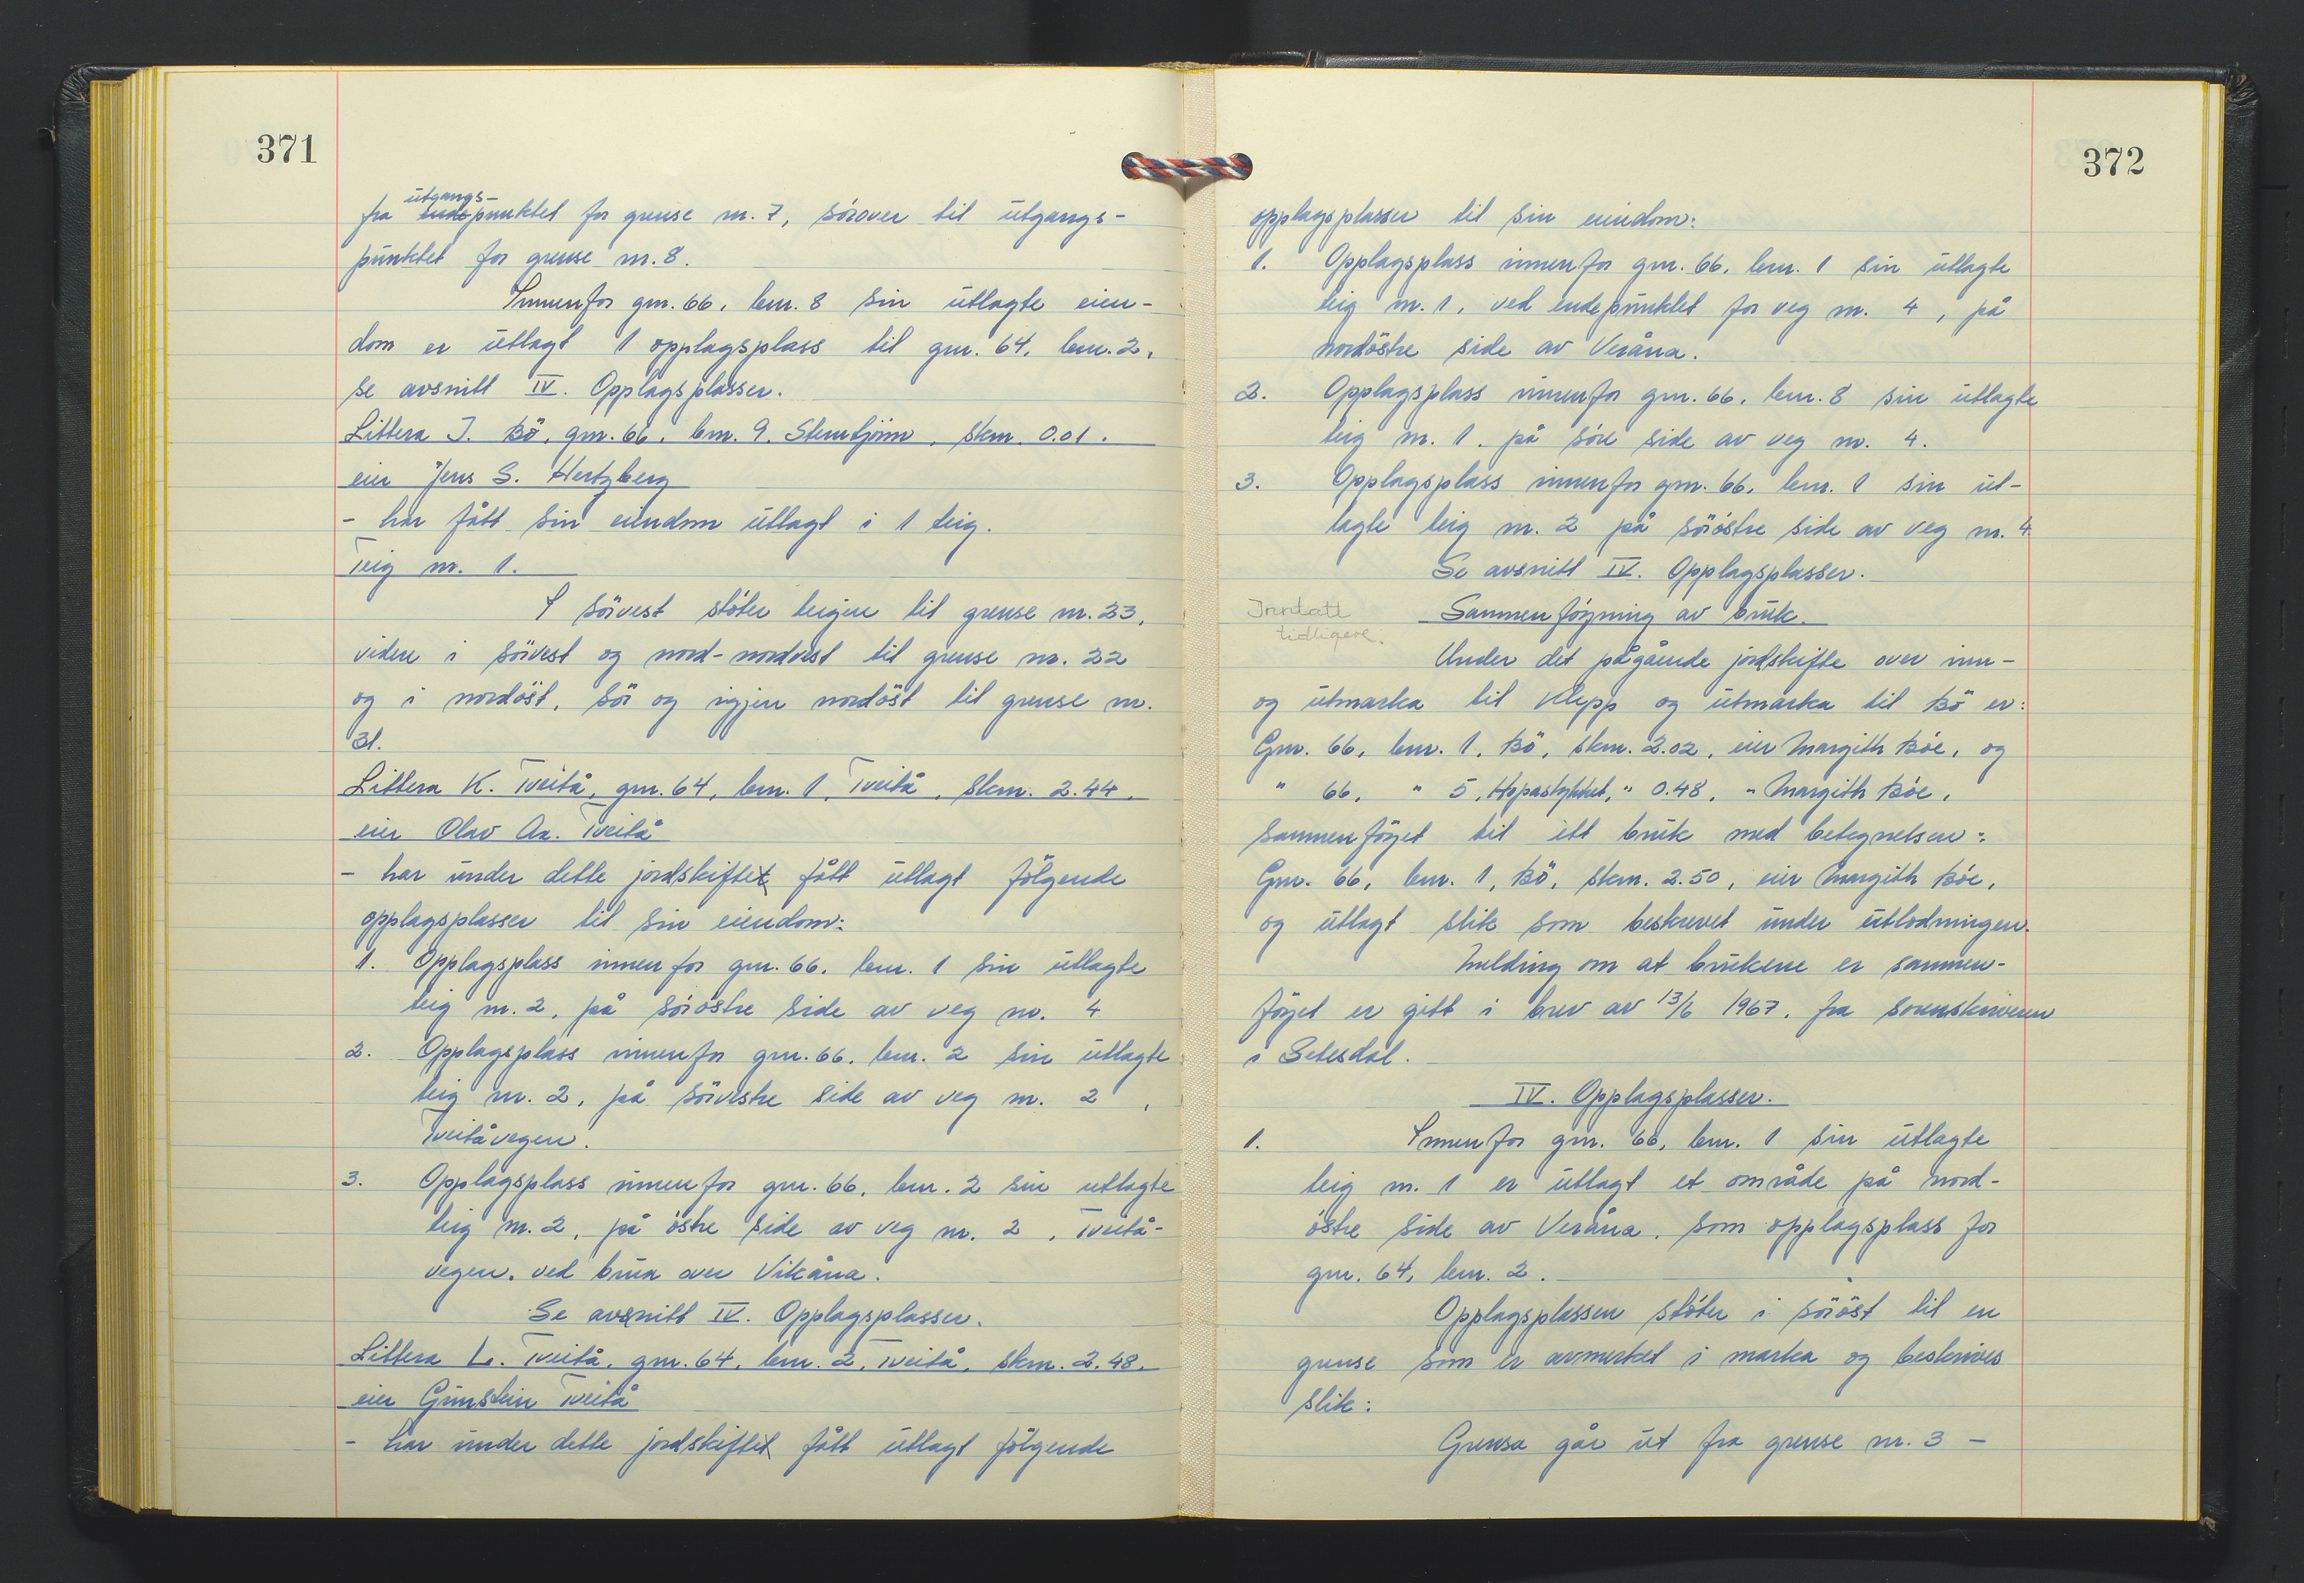 371
fra utgangs-punktet for grense nr. 7, sörover til utgangs-
punktet for grense nr. 8.
Innenfor gnr. 66, bnr. 8 sin utlagte eien-
dom er utlagt 1 opplagsplass til gnr. 64, bnr. 2,
se avsnitt IV. Opplagsplasser.
Littera J. Bö, gnr. 66, bnr. 9. Stemtjönn, skm. 0.01.
eier Jens S. Hertzberg
- har fått sin eiendom utlagt i 1 teig.
Teig nr. 1.
I sörvest stöter teigen til grense nr. 23,
videre i sörvest og nord-nordvest til grense nr. 22
og i nordöst, sör og igjen nordöst til grense nr.
31.
Littera K. Tveitå, gnr. 64, bnr. 1, Tveitå, skm. 2.44,
eier Olav Aa. Tveitå
- har under dette jordskiftet fått utlagt fölgende
opplagsplasser til sin eiendom:
1. Opplagsplass innenfor gnr. 66, bnr. 1 sin utlagte
teig nr. 2, på söröstre side av veg nr. 4
2. Opplagsplass innenfor gnr. 66, bnr. 2 sin utlagte
teig nr. 2, på sörvestre side av veg nr. 2,
Tveitåvegen.
3. Opplagsplass innenfor gnr. 66, bnr. 2 sin utlagte
teig nr. 2, på östre side av veg nr. 2, Tveitå-
vegen, ved brua over Vikåna.
Se avsnitt IV. Opplagsplasser.
Littera L. Tveitå, gnr. 64, bnr. 2, Tveitå, skm. 2.48.
eier Gunstein Tveitå
- har under dette jordskiftet fått utlagt fölgende
372
opplagsplasser til sin eiendom:
1. Opplagsplass innenfor gnr. 66, bnr. 1 sin utlagte
teig nr. 1, ved endepunktet for veg nr. 4, på
nordöstre side av Veråna.
2. Opplagsplass innenfor gnr. 66, bnr. 8 sin utlagte
teig nr. 1 på söre side av veg nr. 4.
3. Opplagsplass innenfor gnr. 66, bnr. 1 sin ut-
lagte teig nr. 2 på söröstre side av veg nr. 4
Se avsnitt IV. Opplagsplasser.
Inntatt
tidligere.
Sammenföyning av bruk.
Under det pågående jordskifte over inn-
og utmarka til Klepp og utmarka til Bö er:
Gnr. 66, bnr. 1, Bö, skm. 2.02, eier Margith Böe, og
" 66, " 5, " 0.48, " Margith Böe,
sammenföyet til ett bruk med betegnelsen:
Gnr. 66, bnr. 1, Bö, skm. 2.50, eier Margith Böe,
og utlagt slik som beskrevet under utlodningen.
Melding om at brukene er sammen-
föyet er gitt i brev av 13/6 1967, fra sorenskriveren
i Setesdal.
IV. Opplagsplasser.
1. Innenfor gnr. 66, bnr. 1 sin utlagte
teig nr. 1 er utlagt et område på nord-
östre side av Veråna, som opplagsplass for
gnr. 64, bnr. 2.
Opplagsplassen stöter i söröst til en
grense som er avmerket i marka og beskrives
slik:
Grensa går ut fra grense nr. 3 -